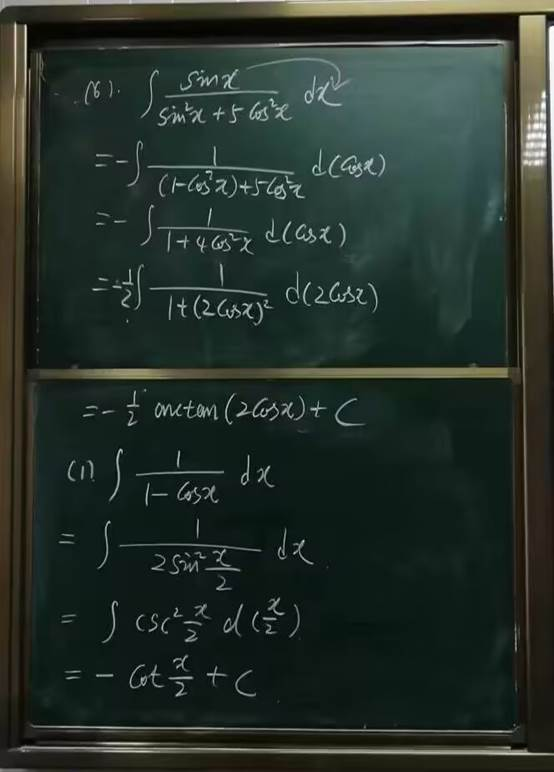 (6). ∫ sinx / (sin²x + 5cos²x) dx
= -∫ 1 / ((1-cos²x)+5cos²x) d(cosx)
= -∫ 1 / (1+4cos²x) d(cosx)
= -1/2 ∫ 1 / (1+(2cosx)²) d(2cosx)
= -1/2 arctan(2cosx) + C
(1) ∫ 1 / (1-cosx) dx
= ∫ 1 / (2sin² x/2) dx
= ∫ csc² x/2 d(x/2)
= - cot x/2 + C